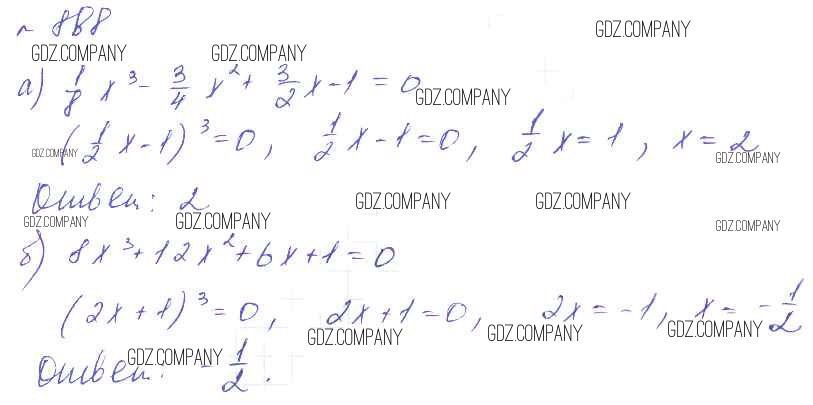 № 888
GDZ.COMPANY
GDZ.COMPANY GDZ.COMPANY
а) 1/8 x³ - 3/4 x² + 3/2 x - 1 = 0
GDZ.COMPANY
(1/2 x - 1)³ = 0, 1/2 x - 1 = 0, 1/2 x = 1, x = 2
GDZ.COMPANY GDZ.COMPANY
Ответ: 2
GDZ.COMPANY GDZ.COMPANY
GDZ.COMPANY GDZ.COMPANY GDZ.COMPANY
б) 8x³ + 12x² + 6x + 1 = 0
(2x + 1)³ = 0, 2x + 1 = 0, 2x = -1, x = -1/2
GDZ.COMPANY GDZ.COMPANY GDZ.COMPANY
Ответ: -1/2.
GDZ.COMPANY